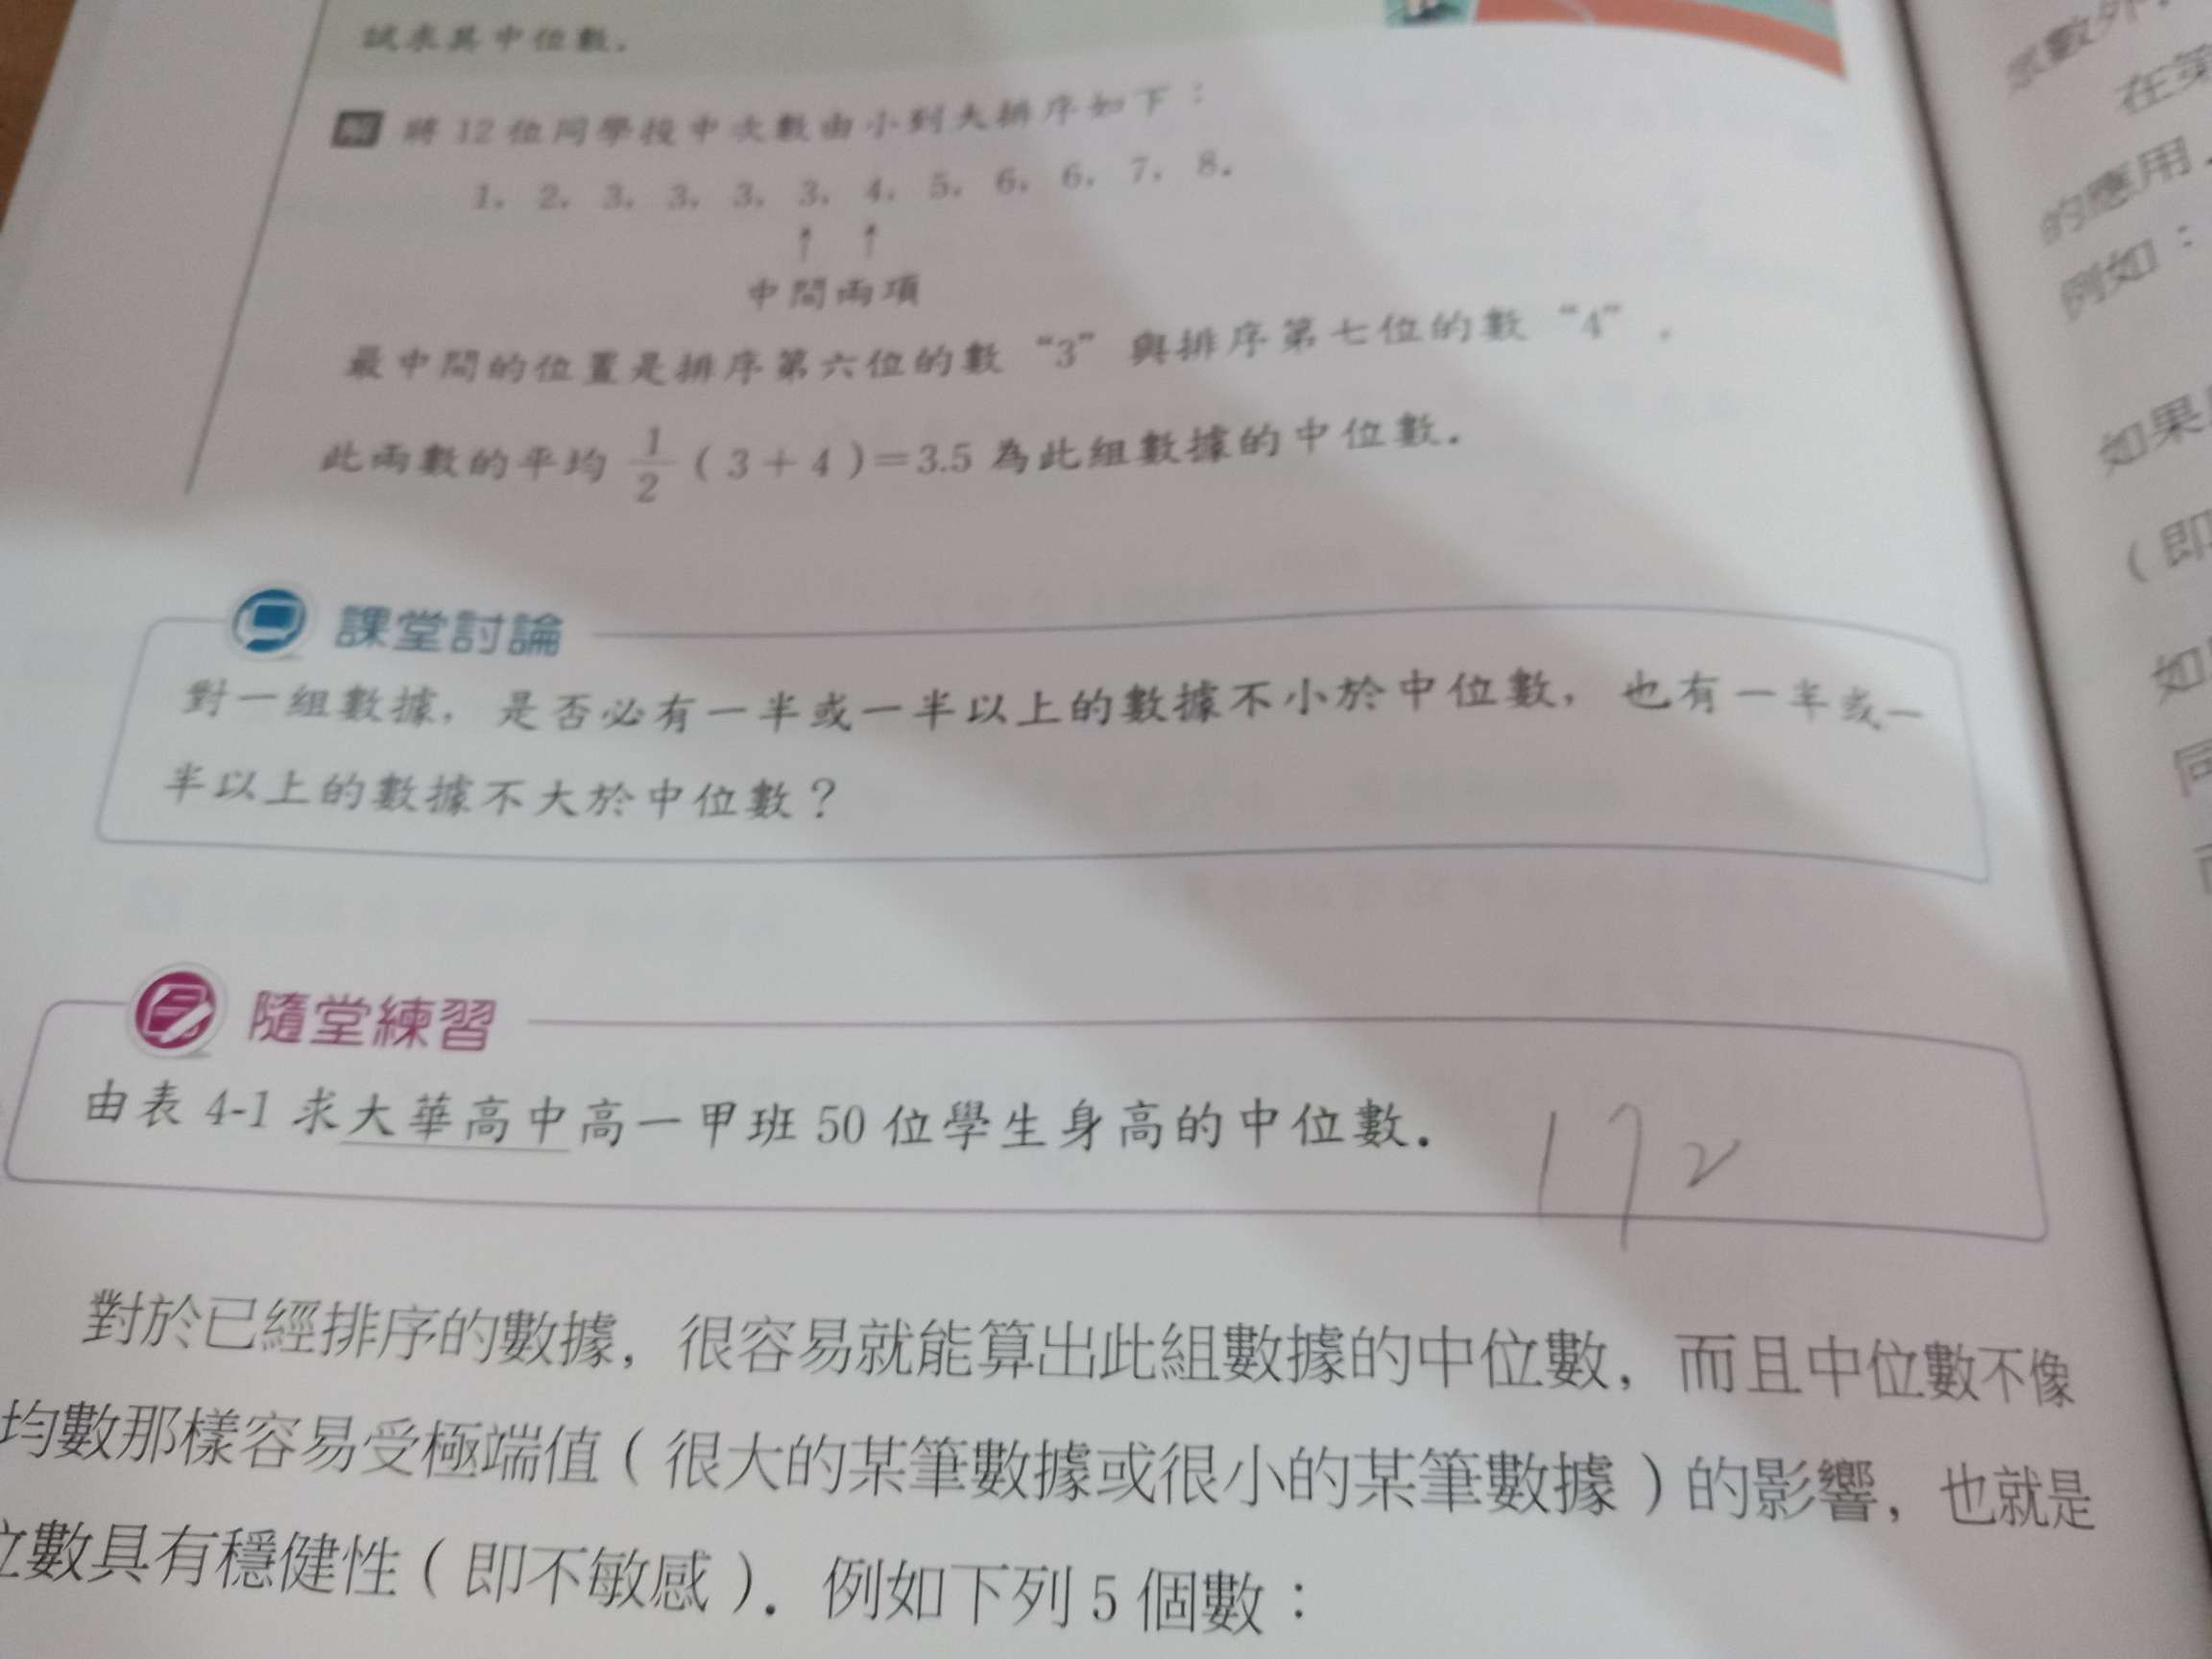 試求其中位數．
解 將 12 位同學投中次數由小到大排序如下：
1，2，3，3，3，3，4，5，6，6，7，8．
↑ ↑
中間兩項
最中間的位置是排序第六位的數“3”與排序第七位的數“4”．
此兩數的平均 1/2 (3+4)=3.5 為此組數據的中位數．
課堂討論
對一組數據，是否必有一半或一半以上的數據不小於中位數，也有一半或一
半以上的數據不大於中位數？
隨堂練習
由表 4-1 求大華高中高一甲班 50 位學生身高的中位數．
172
對於已經排序的數據，很容易就能算出此組數據的中位數，而且中位數不像
均數那樣容易受極端值（很大的某筆數據或很小的某筆數據）的影響，也就是
位數具有穩健性（即不敏感）．例如下列 5 個數：
數外
在
的應用
例如：
如果
（即
如
同